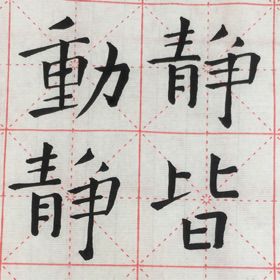 静皆
動静